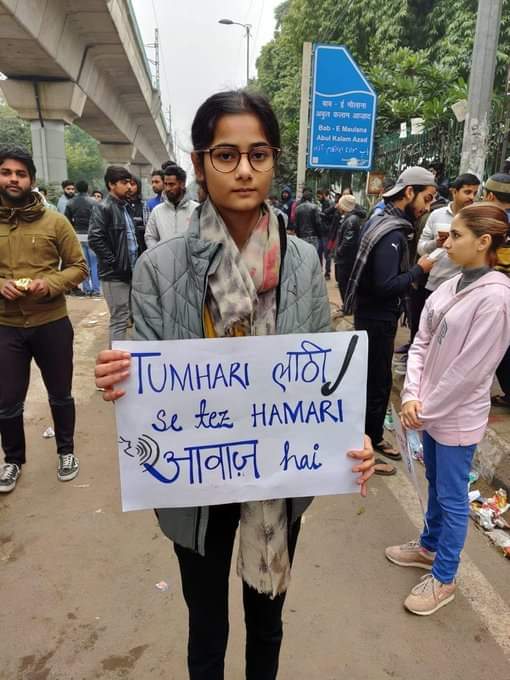 बाब - ई मौलाना
अबुल कलाम आज़ाद
Bab - E Maulana
Abul Kalam Azad
TUMHARI लाठी
se tez HAMARI
आवाज़ hai